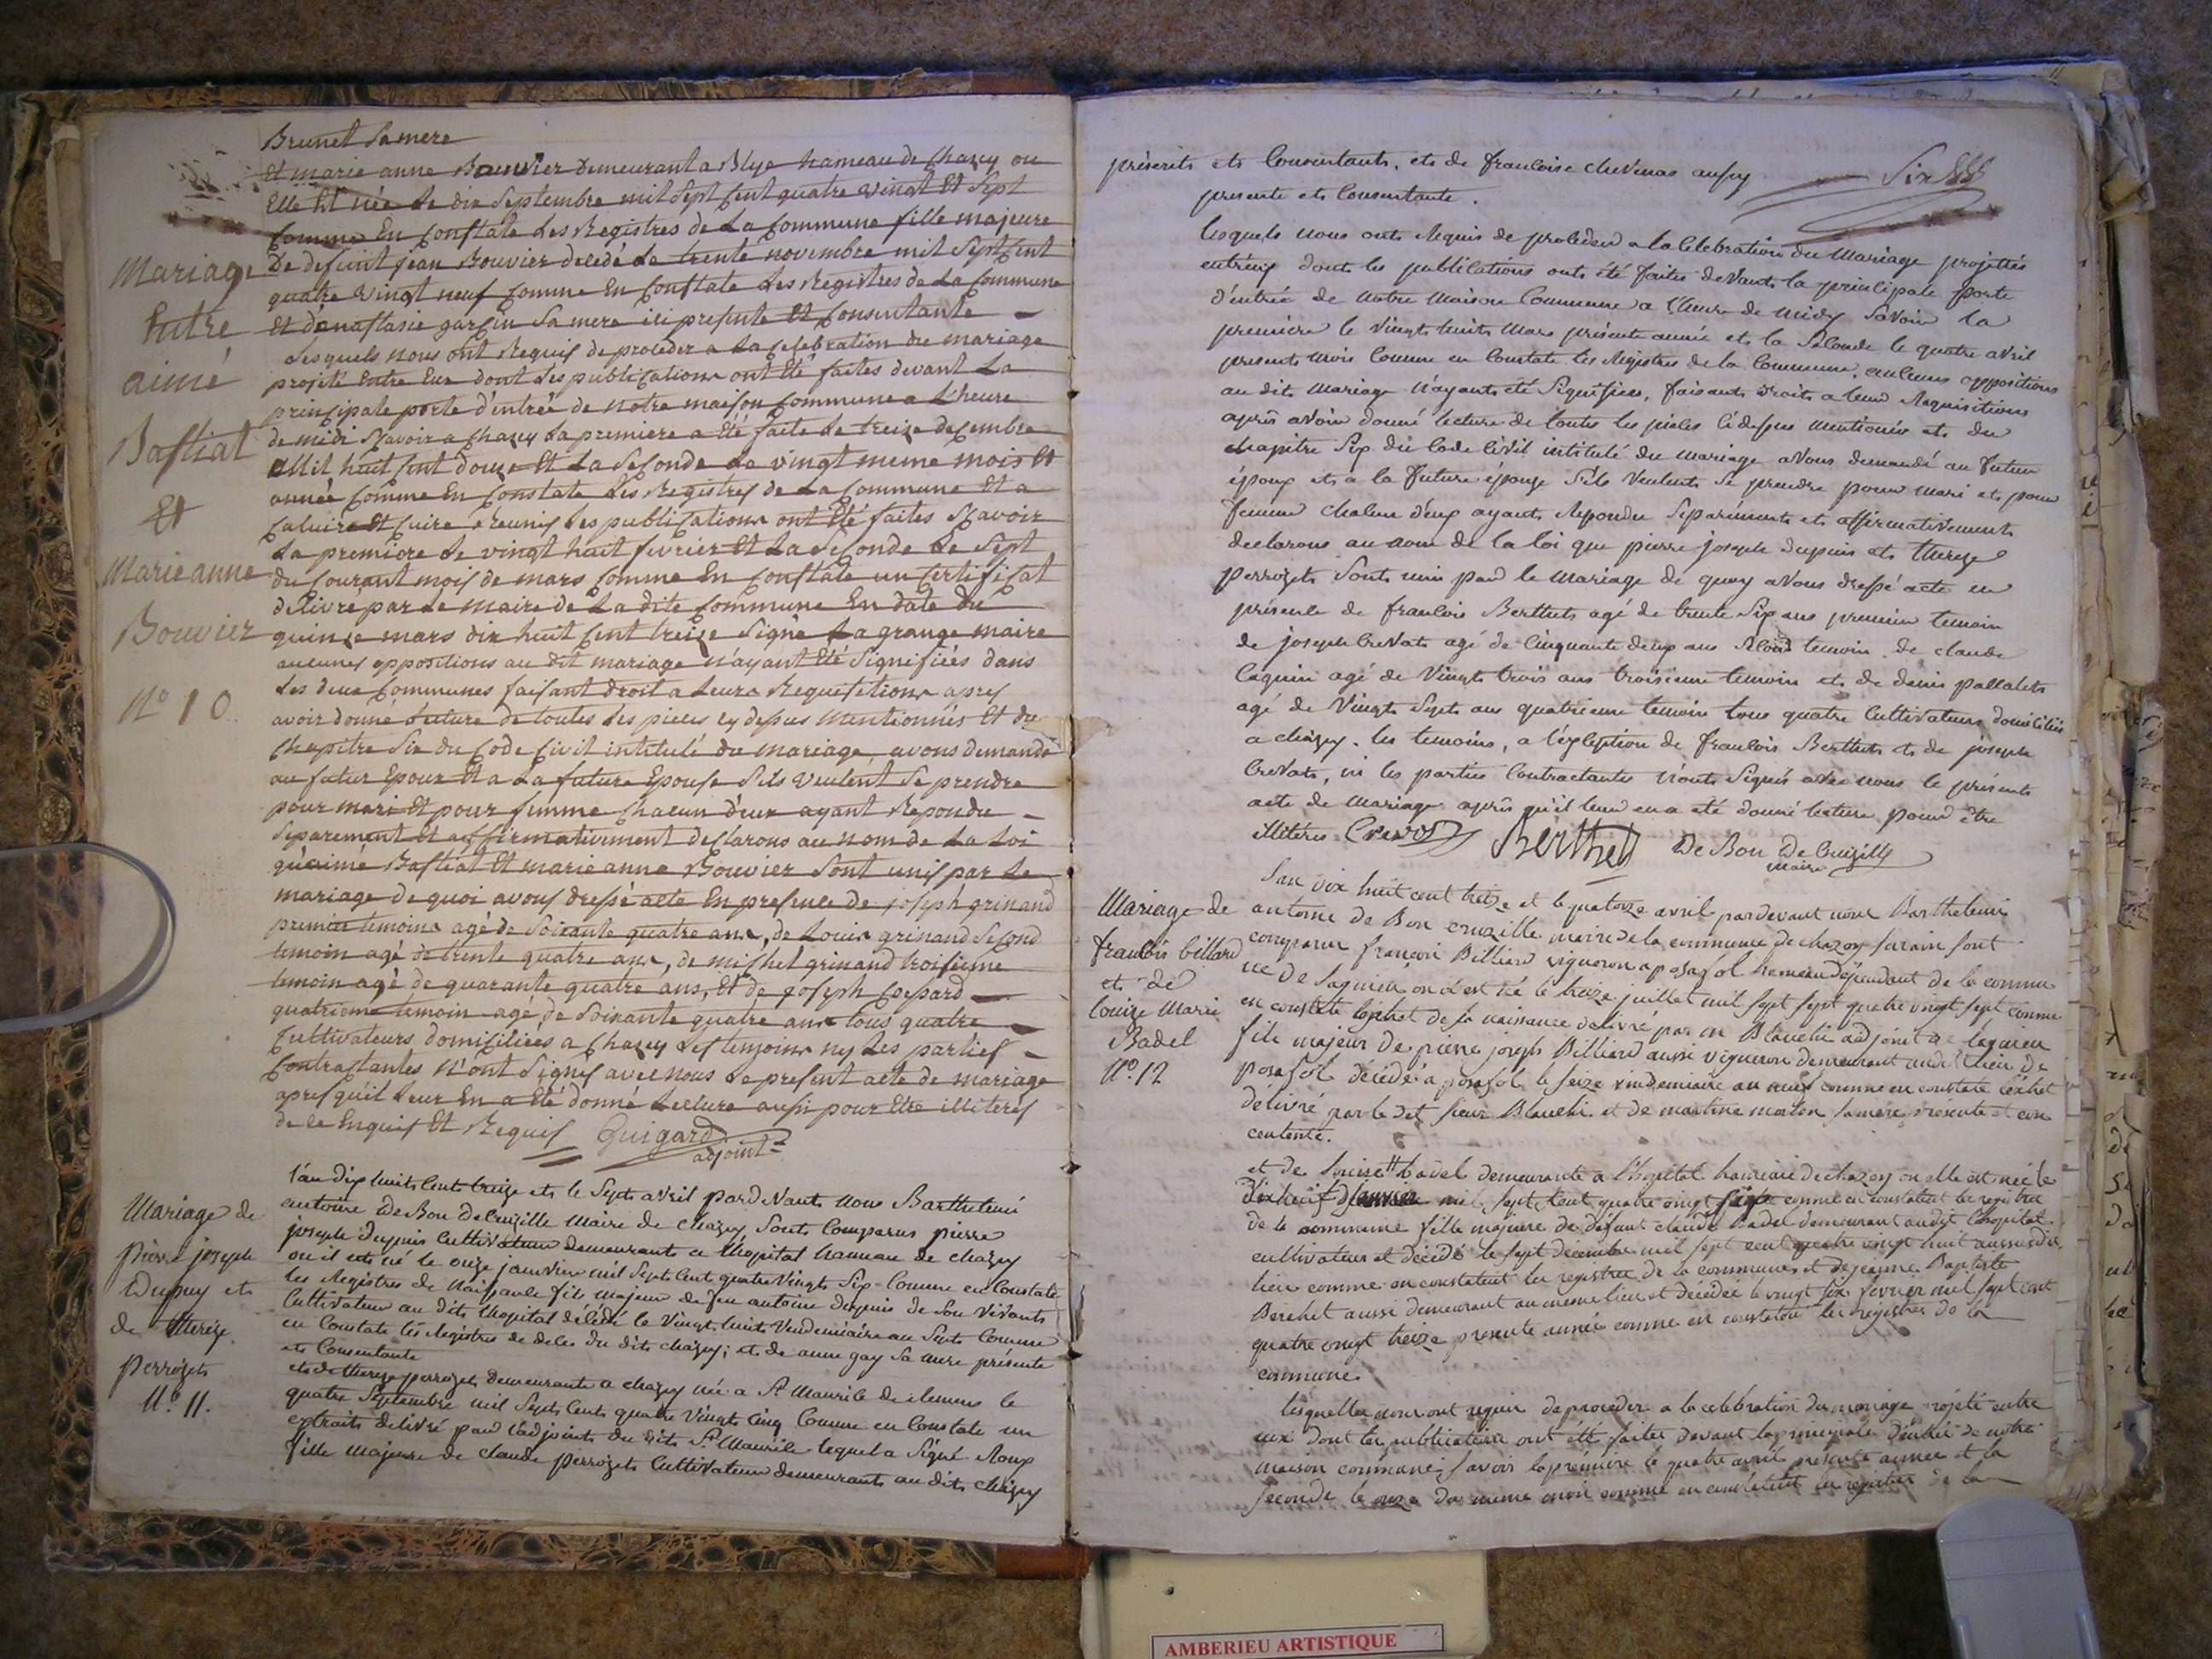 Brunet Sa mere
Et marie anne Bouvier Demeurant a Blye hameau de Chazey ou
Elle Est née Le dix Septembre mil Sept Cent quatre vingt Et Sept
Comme En Constate Les Registres de La Commune fille majeure
De defunt jean Bouvier decedé Le trente novembre mil Sept Cent
quatre vingt neuf Comme En Constate Les Registres de La Commune
Et d'anastasie garçin Sa mere ici presente Et Consentante
Lesquels nous ont Requis de proceder a La Celebration du mariage
projeté Entre Eux dont Les publications ont Eté faites devant La
principale porte d'entrée de notre maison Commune a L'heure
de midi Sçavoir a Chazey La premiere a Eté faite Le treize decembre
Mil huit Cent douze Et La Seconde Le vingt meme mois Et
année Comme En Constate Les Registres de La Commune Et a
Caluire Et Cuire Reunis Les publications ont Eté faites Sçavoir
La premiere Le vingt huit fevrier Et La Seconde Le Sept
du Courant mois de mars Comme En Constate un Certificat
delivré par Le Maire de La dite Commune En date du
quinze mars dix huit Cent treize Signé La grange maire
aucunes oppositions au dit mariage n'ayant Eté Signifiées dans
Les deux Communes faisant droit a Leurs Requisitions apres
avoir donné Lecture de toutes Les pieces cy dessus Mentionnés Et du
Chapitre Six du Code Civil intitulé du mariage, avons demandé
au futur Epoux Et a La future Epouse S'ils veulent Se prendre
pour mari Et pour femme Chacun d'eux ayant Repondu
Separement Et affirmativement declarons au nom de La Loi
qu'aimé Bastiat Et marie anne Bouvier Sont unis par Le
mariage de quoi avons dressé acte En presence de joseph grinand
premier temoins agé de Soixante quatre ans, de Louis grinand Second
temoin agé de trente quatre ans, de michel grinand troisieme
temoin agé de quarante quatre ans, Et de joseph
quatrieme temoin agé de Soixante quatre ans tous quatre
Cultivateurs domiciliées a Chazey Les temoins ny Les parties
Contractantes n'ont Signes avec nous Le present acte de mariage
apres qu'il Leur En a Eté donné Lecture pour Etre illiterés
de ce Enquis Et Requis Guigard
adjoint
Mariage
Entre
aimé
Bastiat
Et
Marie anne
Bouvier
N° 10.
l'an dix huits Cents treize ets le Septs avril pard devants nous Barthelemi
antoine De Bon Decruzille Maire de Chazey Sonts Comparus pierre
joseph dupuis Cultivateur demeurants a l'hopital hameau de chazey
ou il ets né le onze janvier mil Septs Cents quatre Vingts Six Comme en Constate
les Registres de Naissance fils majeur de feu antoine dupuis de Son Vivants
Cultivateur au dits l'hopital décédé le Vingt huits Vendemiaire an Septs Comme
en Constate les Registres de deces du dits chazey; ets de anne gay Sa mere présente
ets Consentante
ets de thereze perrozets demeurante a chazey née a St Maurice de le
quatre Septembre mil Septs Cents quatre Vingts Cinq Comme en Constate un
extraits delivré pard l'adjoints du dits St Maurice lequel a Signé Roux
fille majeure de claude perrozets Cultivateur demeurants au dits chazey
Mariage de
pierre joseph
Dupuy ets
de thereze
perrozets
N° 11.
présents ets Consentants, ets de francoise chevenas aussy
presente ets Consentante.
lesquels nous onts Requis de proceder a la Celebration du Mariage projettés
entr'eux donts les publications onts été faites devants la principale porte
d'entrée de notre Maison Commune a l'heure de midy Savoir la
premiere le Vingts huits Mars présente année ets la Seconde le quatre avril
présents mois Comme en Constate les Registres de la Commune, aucunes oppositions
au dits Mariage n'ayants été Signifiées, faisants droits a leurs Requisitions
après avoir donné lecture de toutes les pieces ci dessus mentionées ets du
chapitre Six du Code Civil intitulé du Mariage avons demandé au futur
époux ets a la future épouse S'ils Veulents Se prendre pour mari ets pour
femme chacun d'eux ayants Repondu Séparéments ets affirmativements
declarons au nom de la loi que pierre joseph Dupuis ets thereze
perrozets Sonts unis pard le Mariage de quoy avons dressé acte en
présence de francois Berthets agé de trente Six ans premier temoin
de joseph Crevats agé de Cinquante deux ans Second temoin de claude
Caguin agé de Vingts trois ans troisieme temoin ets de denis pallalets
agé de Vingts Septs ans quatrieme temoin tous quatre Cultivateurs domiciliés
a chazey. les temoins, a l'exception de francois Berthets ets de joseph
Crevats, ni les parties Contractantes n'onts Signés avec nous le présents
acte de Mariage après qu'il leur en a été donné lecture pour être
illitérés Crevat Berthet De Bon De Cruzille
maire
L'an dix huit cent treize et le quatorze avril pardevant nous Barthelemi
antoine de Bon cruzille maire de la commune de chazey sur ain sont
comparus françois Billiard vigneron a posafol hameau dépendant de la commu
ne De Lagnieu ou il est né le treize juillet mil sept sept quatre vingt sept comme
en constate l'éxtrait de sa naissance delivré par mr Blanchi adjoint de lagnieu
fils majeur de pierre joseph Billiard aussi vigneron demeurant audit lieu de
posafol décédé a posafol le seize vindemiaire an neuf comme en constate l'éxtrait
délivré par le dit sieur Blanchi et de martine marton sa mere présente et con
centente.
et de Louise Badel demeurante a l'hopital hameau de chazey ou elle est née le
dixhuit janvier mil sept cent quatre vingt six comme en constatent les registres
de la commune fille majeure de défunt claude Badel demeurant audit l'hopital
cultivateur et décédé le sept décembre mil sept cent quatre vingt huit aussi dit
lieu comme en constatent les registres de la commune et de jeanne Baptiste
Berchet aussi demeurant au meme lieu et décédée le vingt six février mil sept cent
quatre vingt treize presente année comme en constatent les régistres de la
commune.
Lesquelles nous ont requis de proceder a la celebration du mariage projeté entre
eux dont les publications ont été faites devant la principale d'entrée de notre
maison commune, savoir la première le quatre avril presente année et la
seconde le onze du meme mois comme en constatent les registres de la
Mariage de
francois billard
ets de
louize Marie
Badel
N° 12
AMBERIEU ARTISTIQUE